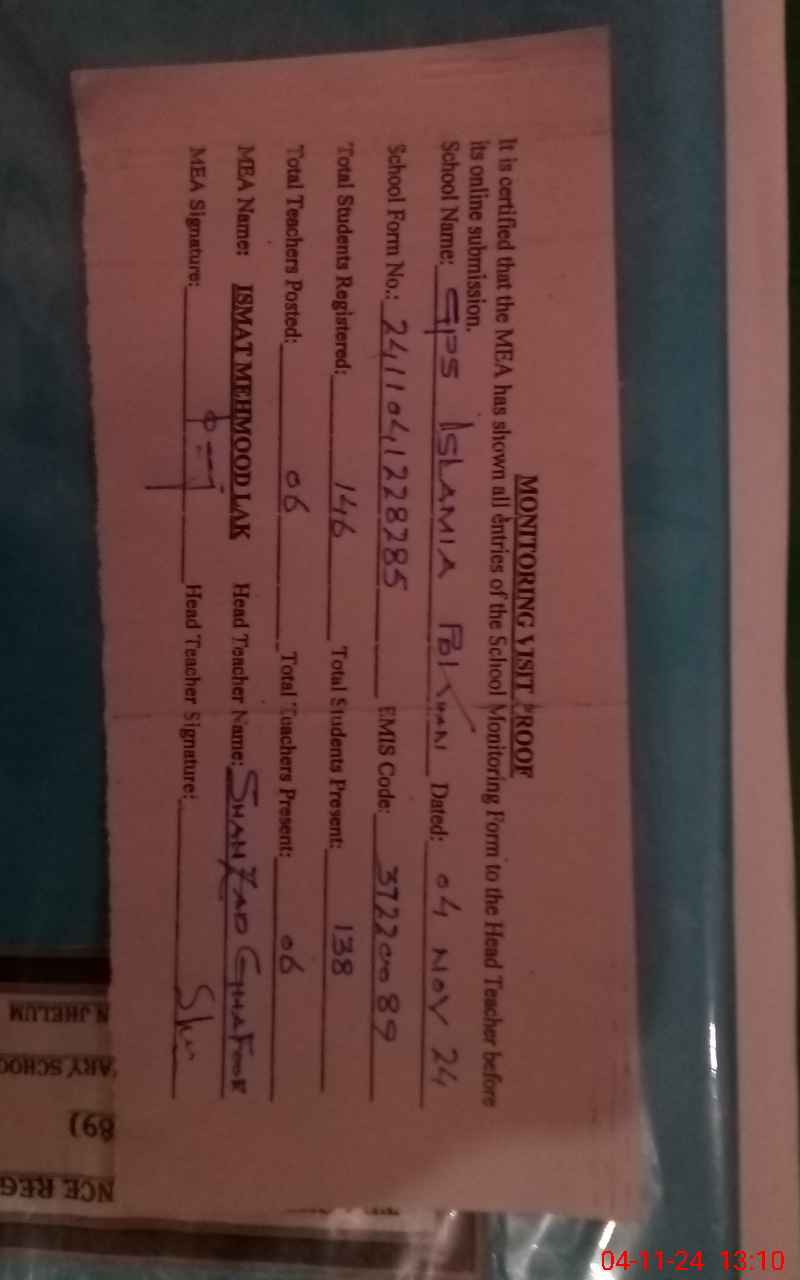 MONITORING VISIT PROOF
It is certified that the MEA has shown all entries of the School Monitoring Form to the Head Teacher before
its online submission.
School Name: GPS ISLAMIA Dated: 04 NOV 24
School Form No.: 2411041228285 EMIS Code: 37220089
Total Students Registered: 146 Total Students Present: 138
Total Teachers Posted: 06 Total Teachers Present: 06
MEA Name: ISMAT MEHMOOD LAK Head Teacher Name: SHAHZAD GHAFOOR
MEA Signature: Head Teacher Signature:
N JHELUM
ARY SCHOO
89)
NCE REG
04-11-24 13:10